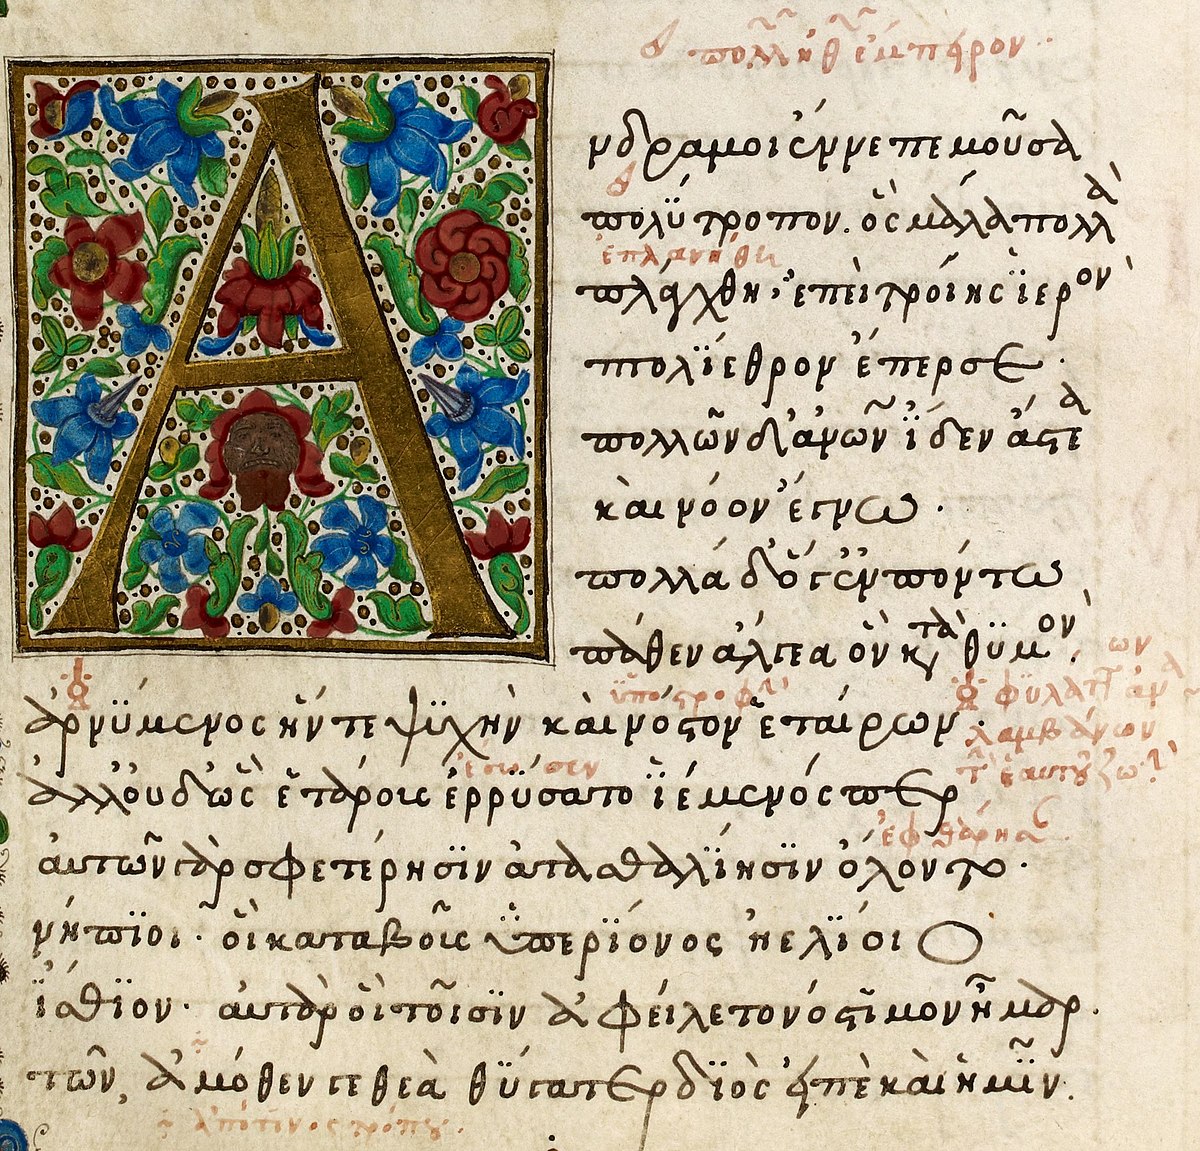 πολλ
Ἄνδρα μοι ἔννεπε μοῦσα
πολύτροπον. ὃς μάλα πολλὰ
ἐπλανήθη
πλάγχθη, ἐπεὶ τροίης ἱερὸν
πτολίεθρον ἔπερσε.
πολλῶν δ' ἀνων ἴδεν ἄστεα
καὶ νόον ἔγνω.
πολλὰ δ' ὅγ' ἐν πόντω
πάθεν ἄλγεα ὃν κατὰ θυμὸν.
ὑποστροφὴ
ἀρνύμενος ἥν τε ψυχὴν καὶ νόστον ἑταίρων.
λαμβάνων
ἔσωσεν
ἀλλ' οὐδ' ὧς ἑτάρους ἐρρύσατο ἱέμενός περ
ἐφθάρησαν
αὐτῶν γὰρ σφετέρησιν ἀτασθαλίησιν ὄλοντο.
νήπιοι. οἳ κατὰ βοῦς ὑπερίονος ἠελίοιο
ἤσθιον. αὐτὰρ ὁ τοῖσιν ἀφείλετο νόστιμον ἦμαρ.
τῶν, ἀμόθεν γε θεὰ θύγατερ διὸς εἰπὲ καὶ ἡμῖν.
ἀπό τινος τρόπου.